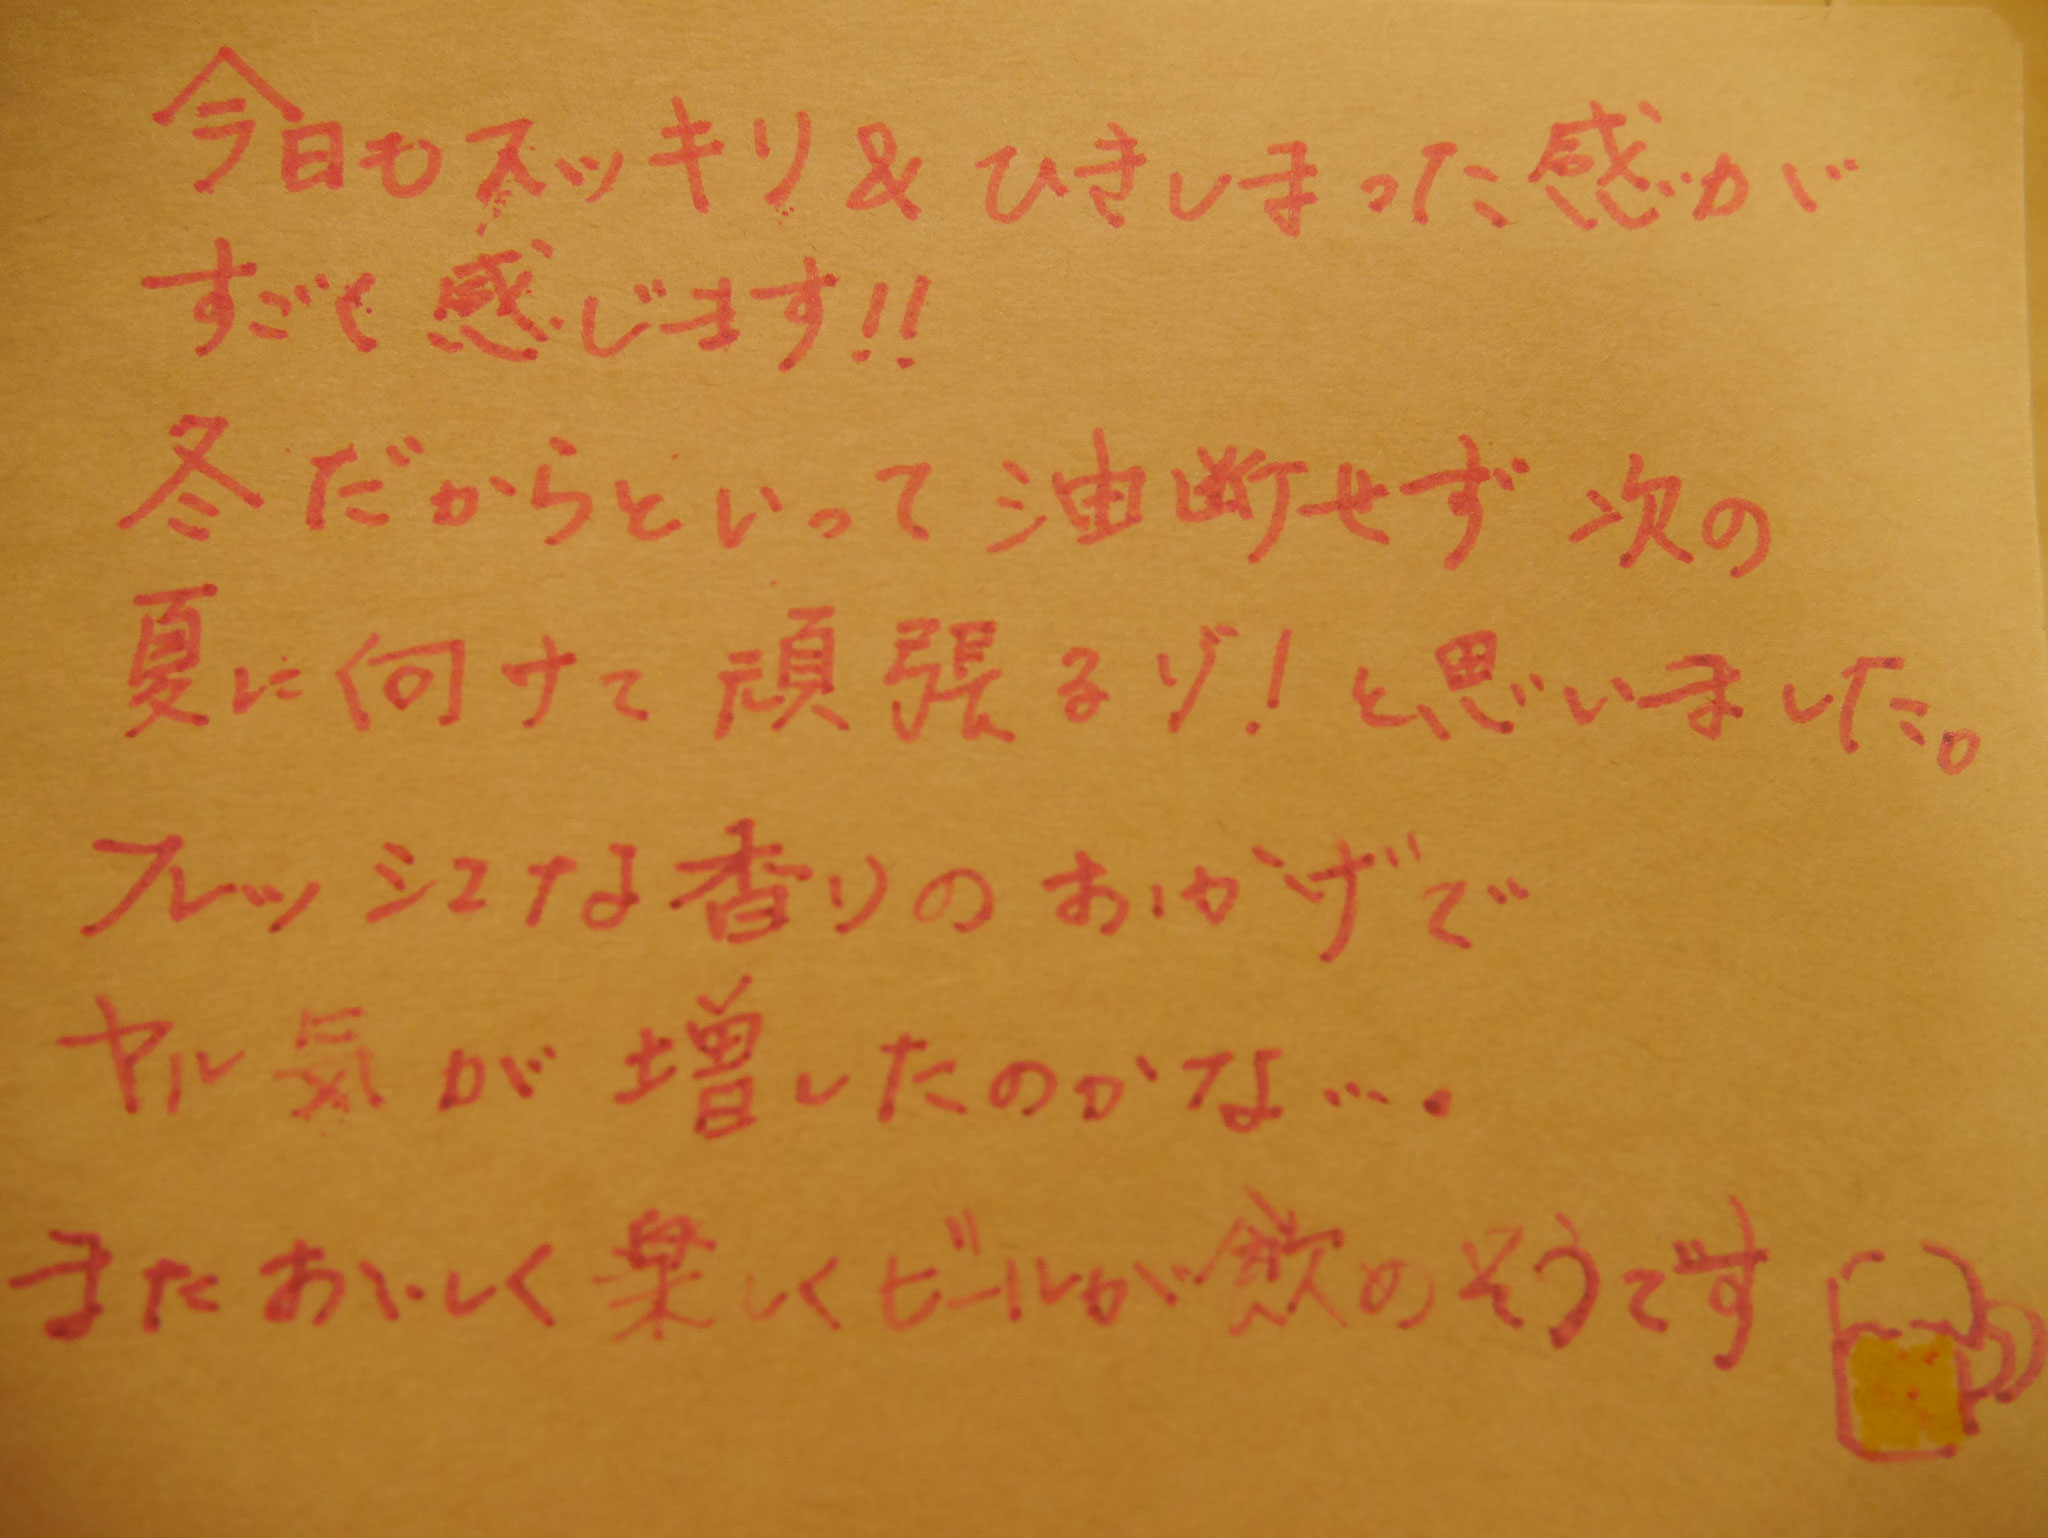 今日もスッキリ&ひきしまった感が
すごく感じます!!
冬だからといって油断せず次の
夏に向けて頑張るゾ!と思いました。
フレッシュな香りのおかげで
ヤル気が増したのかな….
またおいしく楽しくビールが飲めそうです